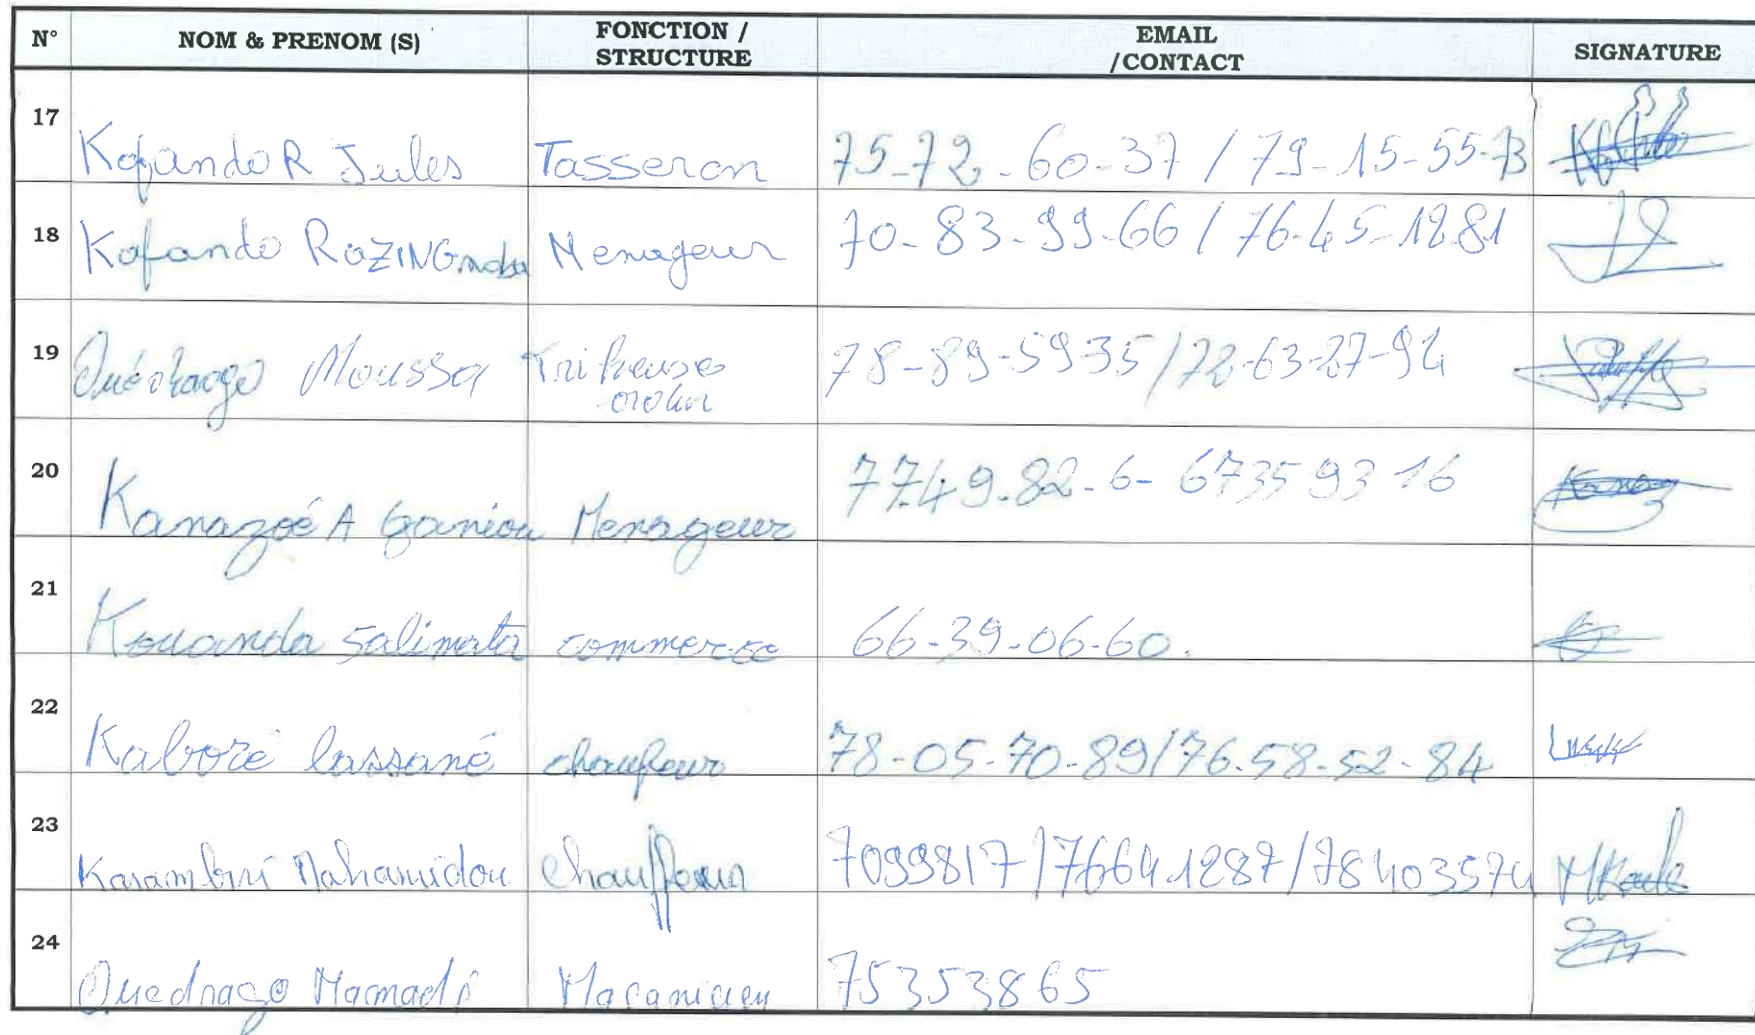 N° NOM & PRENOM (S) FONCTION / STRUCTURE EMAIL /CONTACT SIGNATURE
17 Kofando R Jules Tasseron 75-72-60-37 / 79-15-55-
18 Kafando Menageur 70-83-99-66 / 76-45-1281
19 Moussa 78-89-5935/72-63-27-94
20 Kanazoé A Ganiou Menageur 7749-82-6- 67359316
21 Kouanda Salimata commerce 66-39-06-60.
22 Kaboré lassané chaufeur 78-05-70-89/76.58-52-84
23 Karambiri Mahamidou Chauffeur 7099817/76641287/78403574
24 Ouedrago Mamadi Macanicien 75353865